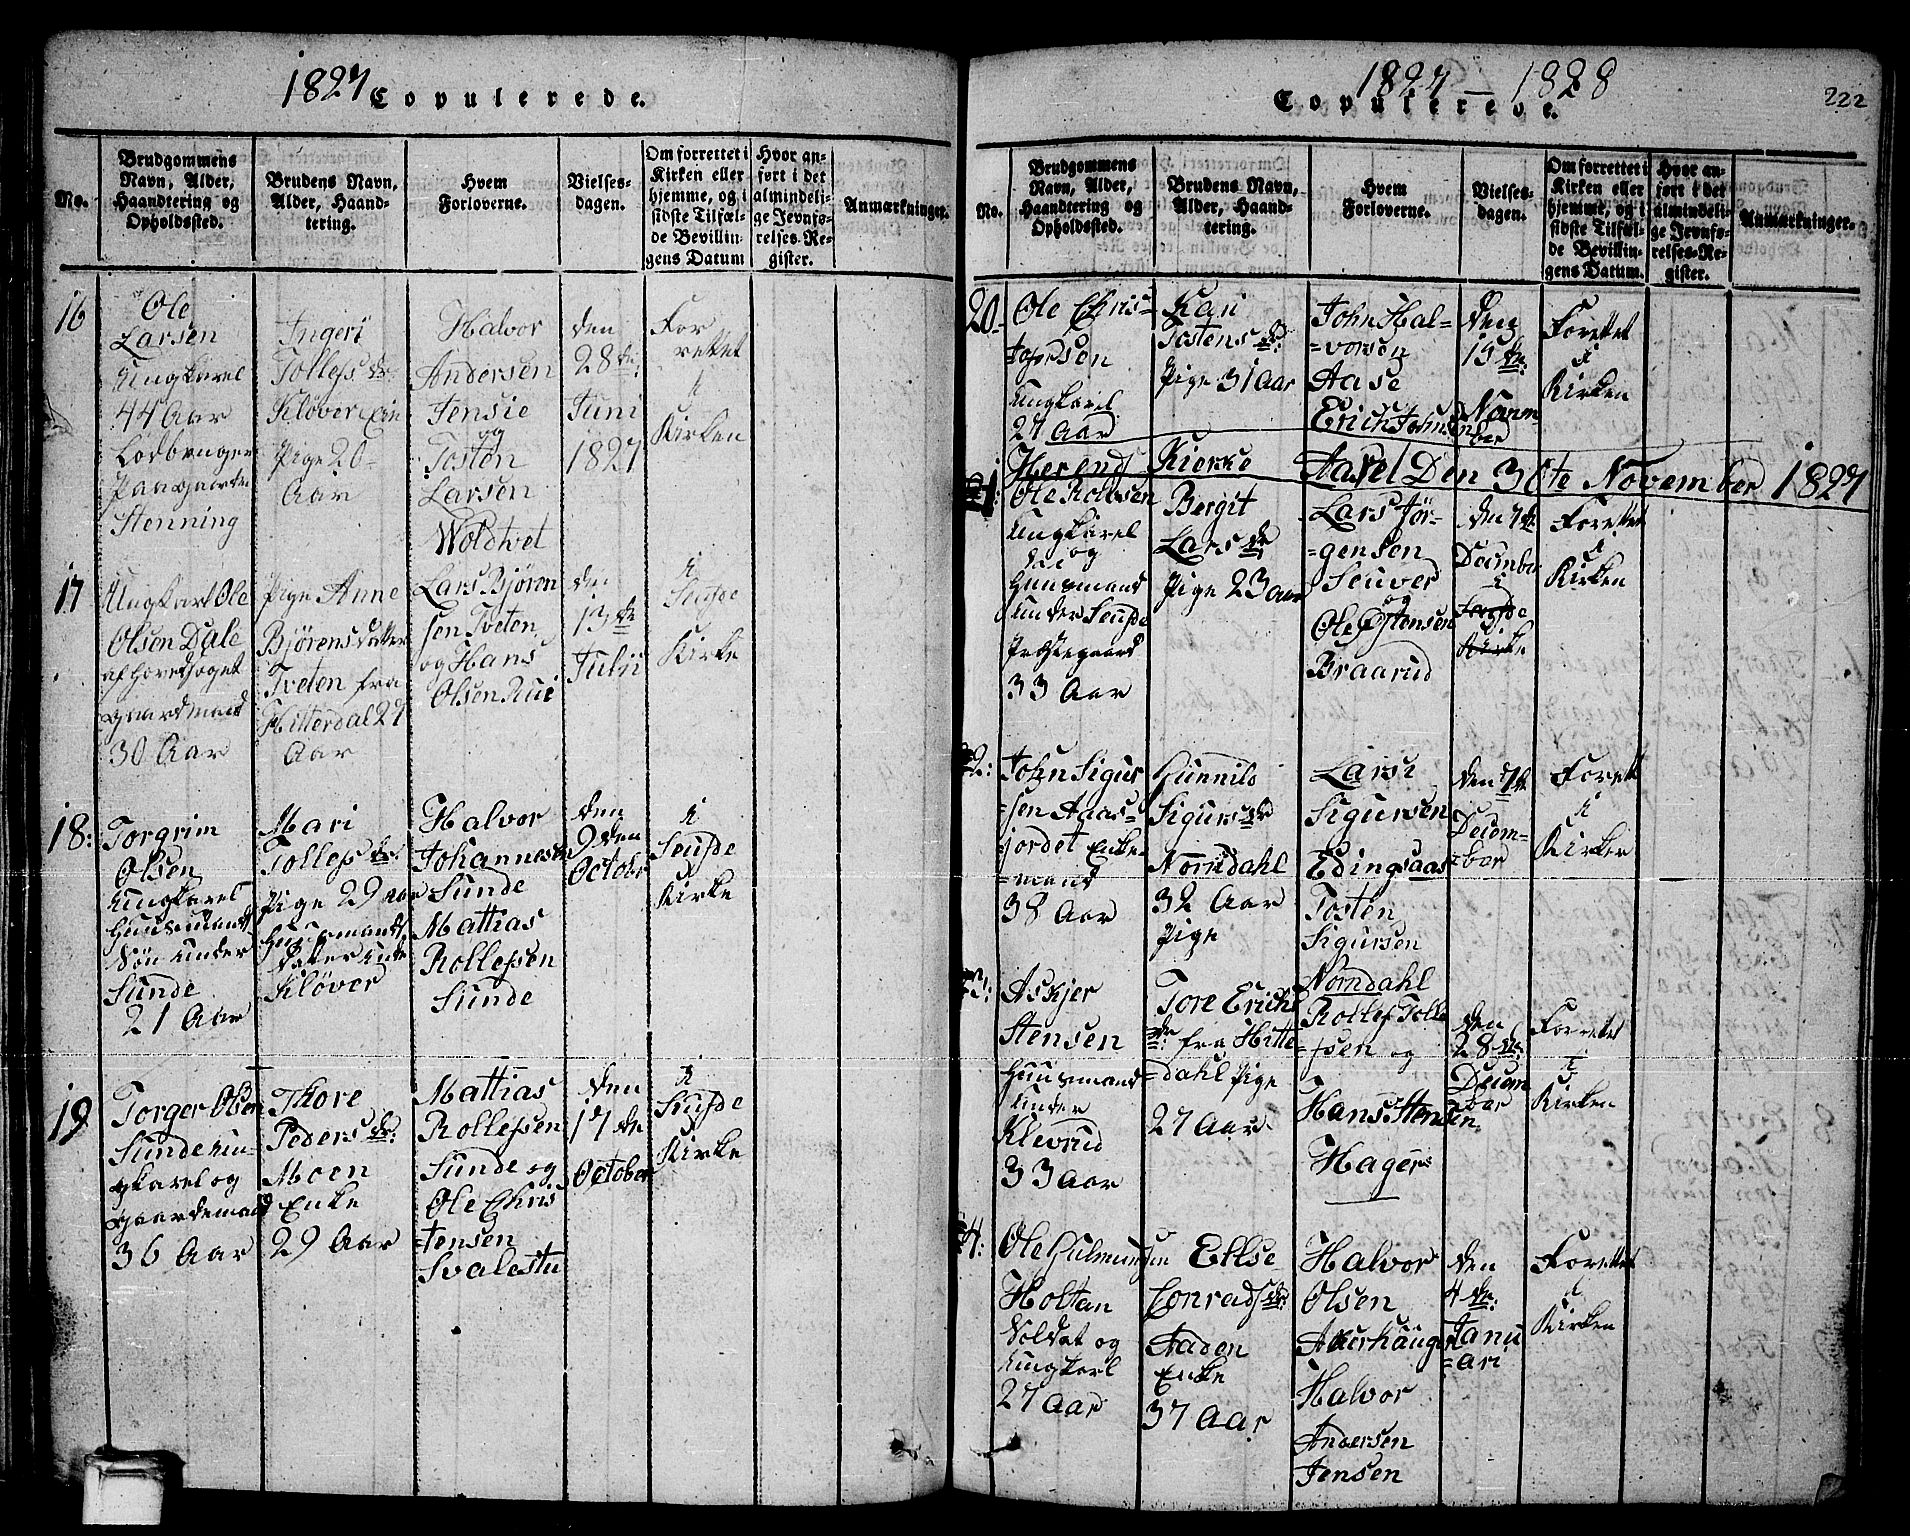 1827
Copulerede.
No.
Brudgommens
Navn, Alder,
Haandtering og
Opholdssted.
Brudens Navn,
Alder, Haand-
tering.
Hvem
Forloverne.
Vielses-
dagen.
Om forrettet i
Kirken eller
hjemme, og i
sidste Tilfæl-
de Bevillin-
gens Datum
Hvor an-
ført i det
almindeli-
ge Jevnfø-
relses-Re-
gister.
Anmærkninger.
16
Ole
Larsen
Ungkarel
44 Aar
Stenning
Ingeri
Tollefs dr.
Kløver
Pige 20
Aar
Halvor
Andersen
Jensie
og
Tosten
Larsen
Woldvet
den
28de
Juni
1827
For
rettet
i
Kirken
17
Ungkarl Ole
Olsen Dale
af hovedsognet
gaardmand
30 Aar
Pige Anne
Bjørensdatter
Tveten fra
Hitterdal 27
Aar
Lars Bjøren
sen Tveten
og Hans
Olsen Rui
den
13de
Julii
i
Seufde
Kirke
18:
Torgrim
Olsen
Ungkarel
Huusmands
Søn under
Sunde
21 Aar
Mari
Tollefs dr.
Pige 29 aar
Huusmands
datter unde
Kløver
Halvor
Johannesen
Sunde
Mathias
Rollefsen
Sunde
den
9den
October
i
Seufde
Kirke
19
Torger Olsen
Sunde un-
gkarel og
gaardemand
36 Aar
Thore
Peders dr:
Moen
Enke
29 Aar
Mathias
Rollefsen
Sunde og
Ole Chris
tensen
Svalestu
den
17de
October
i
Seufde
Kirke
1827 – 1828
222
Copulerede.
No.
Brudgommens
Navn, Alder,
Haandtering og
Opholdssted.
Brudens Navn,
Alder, Haand-
tering.
Hvem
Forloverne.
Vielses-
dagen.
Om forrettet i
Kirken eller
hjemme, og i
sidste Tilfæl-
de Bevillin-
gens Datum.
Hvor an-
ført i det
almindeli-
ge Jevnfø-
relses-Re-
gister.
Anmærkninger.
20
Ole Chris-
tofersen
Ungkarel
27 Aar
Kari
Tostens dr:
Pige 31 Aar
John Hal-
=vorsen
Aase
Erich Johnsen
den
15de:
Novem
ber
Forettet
i
Kirken
Herends Kierke Aarel Den 30te November 1827
21:
Ole Rollefsen
Ungkarel
og
Huusmand
under Seufde
Præstegaard
33 Aar
Bergit
Lars dr
Pige 23 aar
Lars Jør-
=gensen
Seuver
og
Ole Østensen
Braarud
den 7de
Decembr
i
Kirke
Forettet
i
Kirken
22:
John Sigur
=sen Aaas-
jordet Enke-
=mand
38 Aar
Gunnild
Sigurs dr
Norndahl
32 Aar
Pige
Lars
Sigursen
Edingsaas
Tosten
Sigursen
Norndahl
den 7de
Decem-
=ber
Forett
i
Kirken
23:
Askjer
Stensen
Huusmand
under
Klevrud
33 Aar
Tore Erichs
dr: fra Hitte
=dahl Pige
27 Aar
Rollef Tolle
=fsen og
Hans Stensen
Hagen
den
28de:
Decem
ber
Forrettet
i
Kirken
24:
Ole Gulmundsen
Holtan
Soldat og
Ungkarl
27 Aar
Ellse
Conrads dr:
Aaden
Enke
37 Aar
Halvor
Olsen
Akerhaugen
Halvor
Andersen
Jensen
den
4de:
Janu
=ari
Forettet
i
Kirken